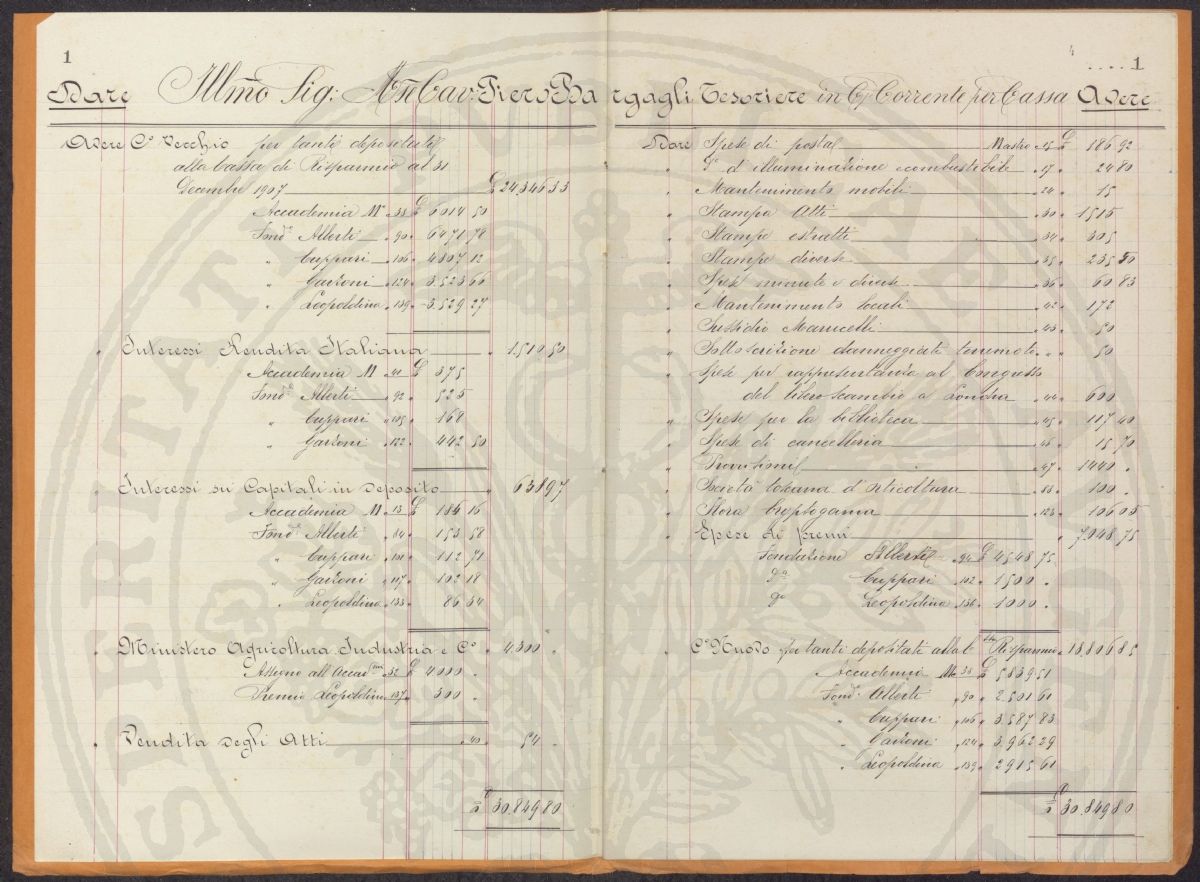 1
Dare Illmo Sig: Mse Cav: Piero Bargagli Tesoriere in C/ Corrente per Cassa Avere
1
Avere Co Vecchio per tanti depositati
alla Cassa di Risparmio al 31
Decembre 1907 £ 24346 33
Accademia Mo 38 £ 6014 50
Fondne Alberti 90 6471 78
" Cuppari 106 4807 12
" Gaizoni 124 3523 66
" Leopoldino 139 3529 27
" Interessi Rendita Italiana " 1510 50
Accademia M 41 £ 375
Fondne Alberti 92 525
" Cuppari 105 168
" Gaizoni 122 442 50
" Interessi su Capitali in deposito " 638 97
Accademia M 13 £ 184 16
Fondne Alberti 84 153 58
" Cuppari 101 112 71
" Gaizoni 117 102 18
" Leopoldino 133 86 34
" Ministero Agricoltura Industria e Co 4300
Assegno all'Accadmia 32 £ 4000
Premio Leopoldino 137 300
" Vendita degli Atti 40 54
£ 30.849 80
Dare Spese di posta Mastro 25 £ 186 92
" Do d'illuminazione e combustibile 27 24 80
" Mantenimento mobili 24 15
" Stampa Atti 30 1515
" Stampe estratti 34 305
" Stampe diverse 35 235 50
" Spese minute e diverse 36 60 83
" Mantenimento locali 42 172
" Sussidio 43 50
" Sottoscrizione danneggiati terremoto " 50
" Spese per rappresentanza al Congresso
del libero scambio a Londra 44 600
" Spese per la biblioteca 45 117 40
" Spese di cancelleria 46 15 70
" 47 1440
" Società toscana d'Orticoltura 83 100
" Flora Crittogama 123 106 05
" Spese di premi " 7.048 75
Fondazione Alberti 94 £ 4548 75
Do Cuppari 102 1500
Do Leopoldino 136 1000
Co Nuovo per tanti depositati alla Cssa Risparmio 18.806 85
Accademia Mo 38 £ 5839 51
Fondne Alberti 90 2.501 61
" Cuppari 106 3.587 83
" Gaizoni 124 3.962 29
" Leopoldino 139 2915 61
£ 30.849 80